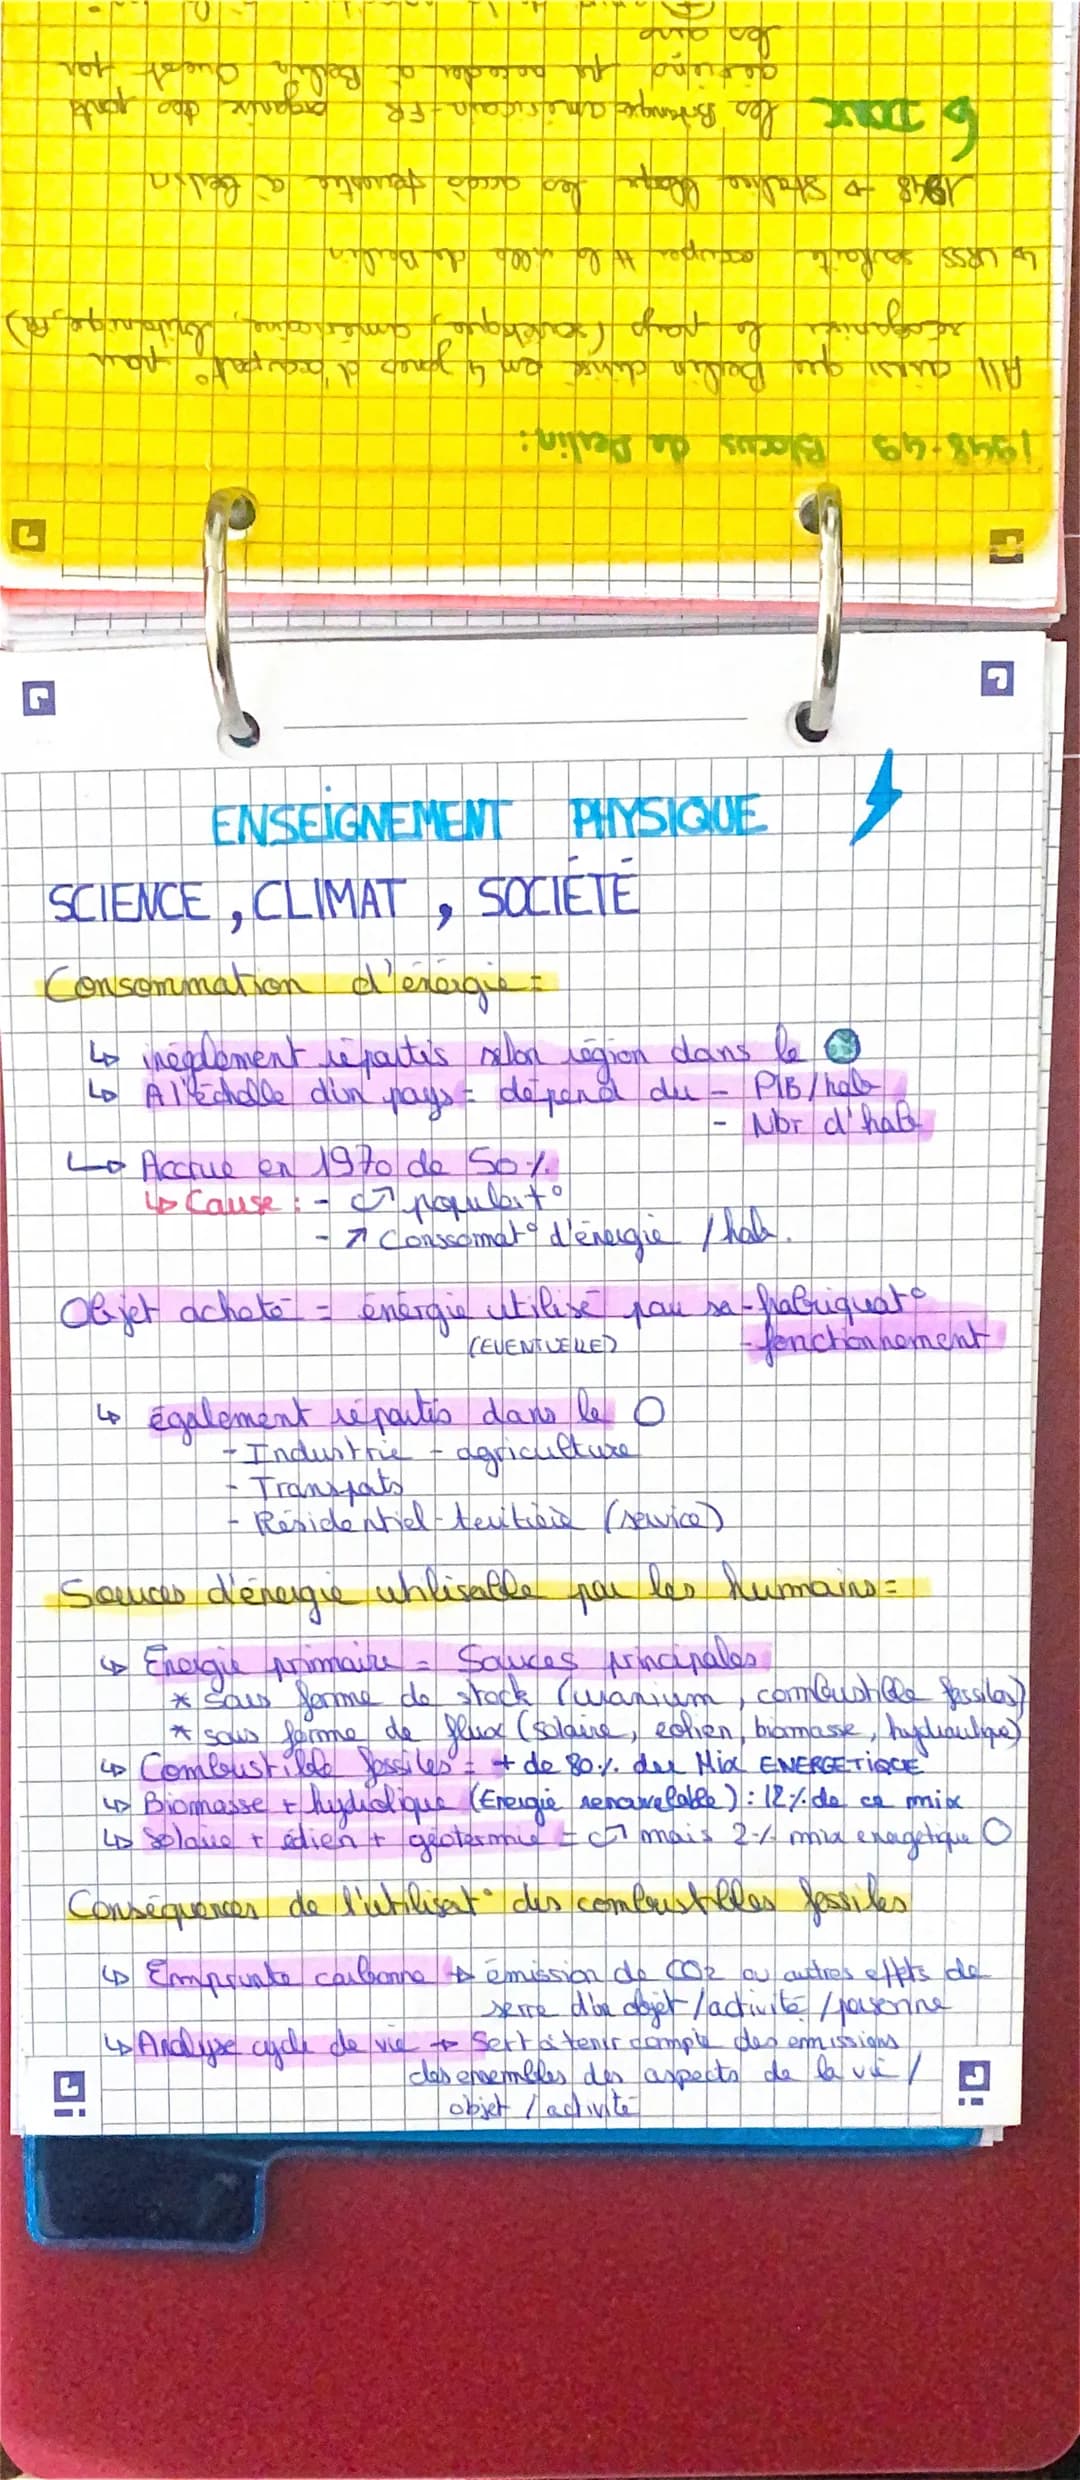 1948-49 Blocus de Berlin:
All ainsi que Berlin divisé en 4 zones d'occupat° pour
réorganiser le pays (soviétique, américaine, britannique, FR)
↳ URSS souhaite occuper tt la ville de Berlin
1948 → Staline bloque les accès terrestre à Berlin
DONC les Britanique américain-FR organise des ponts
aériens pr acceder à Berlin Ouest par
les airs
ENSEIGNEMENT PHYSIQUE
SCIENCE, CLIMAT, SOCIÉTÉ
Consommation d'énérgie =
↳ inéglement répartis selon région dans le
↳ A l'échelle d'un pays = dépend du - PIB/hab
- Nbr d'hab
↳ Accrue en 1970 de 50%
↳ Cause : - ↗ populat°
- ↗ Conssomat° d'énergie / hab.
Objet acheté = énérgie utilisé par sa - fabriquat°
(EVENTUELLE) - fonctionnement
↳ également répartis dans le
- Industrie - agriculture
- Transports
- Résidentiel-tertière (service)
Sources d'énergie utilisable par les humains =
↳ Énergie primaire = Sources principales
* sous forme de stock (uranium, combustible fossiles)
* sous forme de flux (solaire, eolien, biomasse, hydraulique)
↳ Combustible fossiles = + de 80% du Mix ENERGETIQUE
↳ Biomasse + hydrolique (Énergie renouvelable) : 12% de ce mix
↳ Solaire + éolien + géotermie = ↗ mais 2% mix energetique
Conséquences de l'utilisat° des combustibles fossiles
↳ Emprunte carbonne → émission de CO2 ou autres effets de
serre d'un objet/activité/personne
↳ Analyse cycle de vie → Sert à tenir compte des émissions
des ensembles des aspects de la vie /
objet / activité